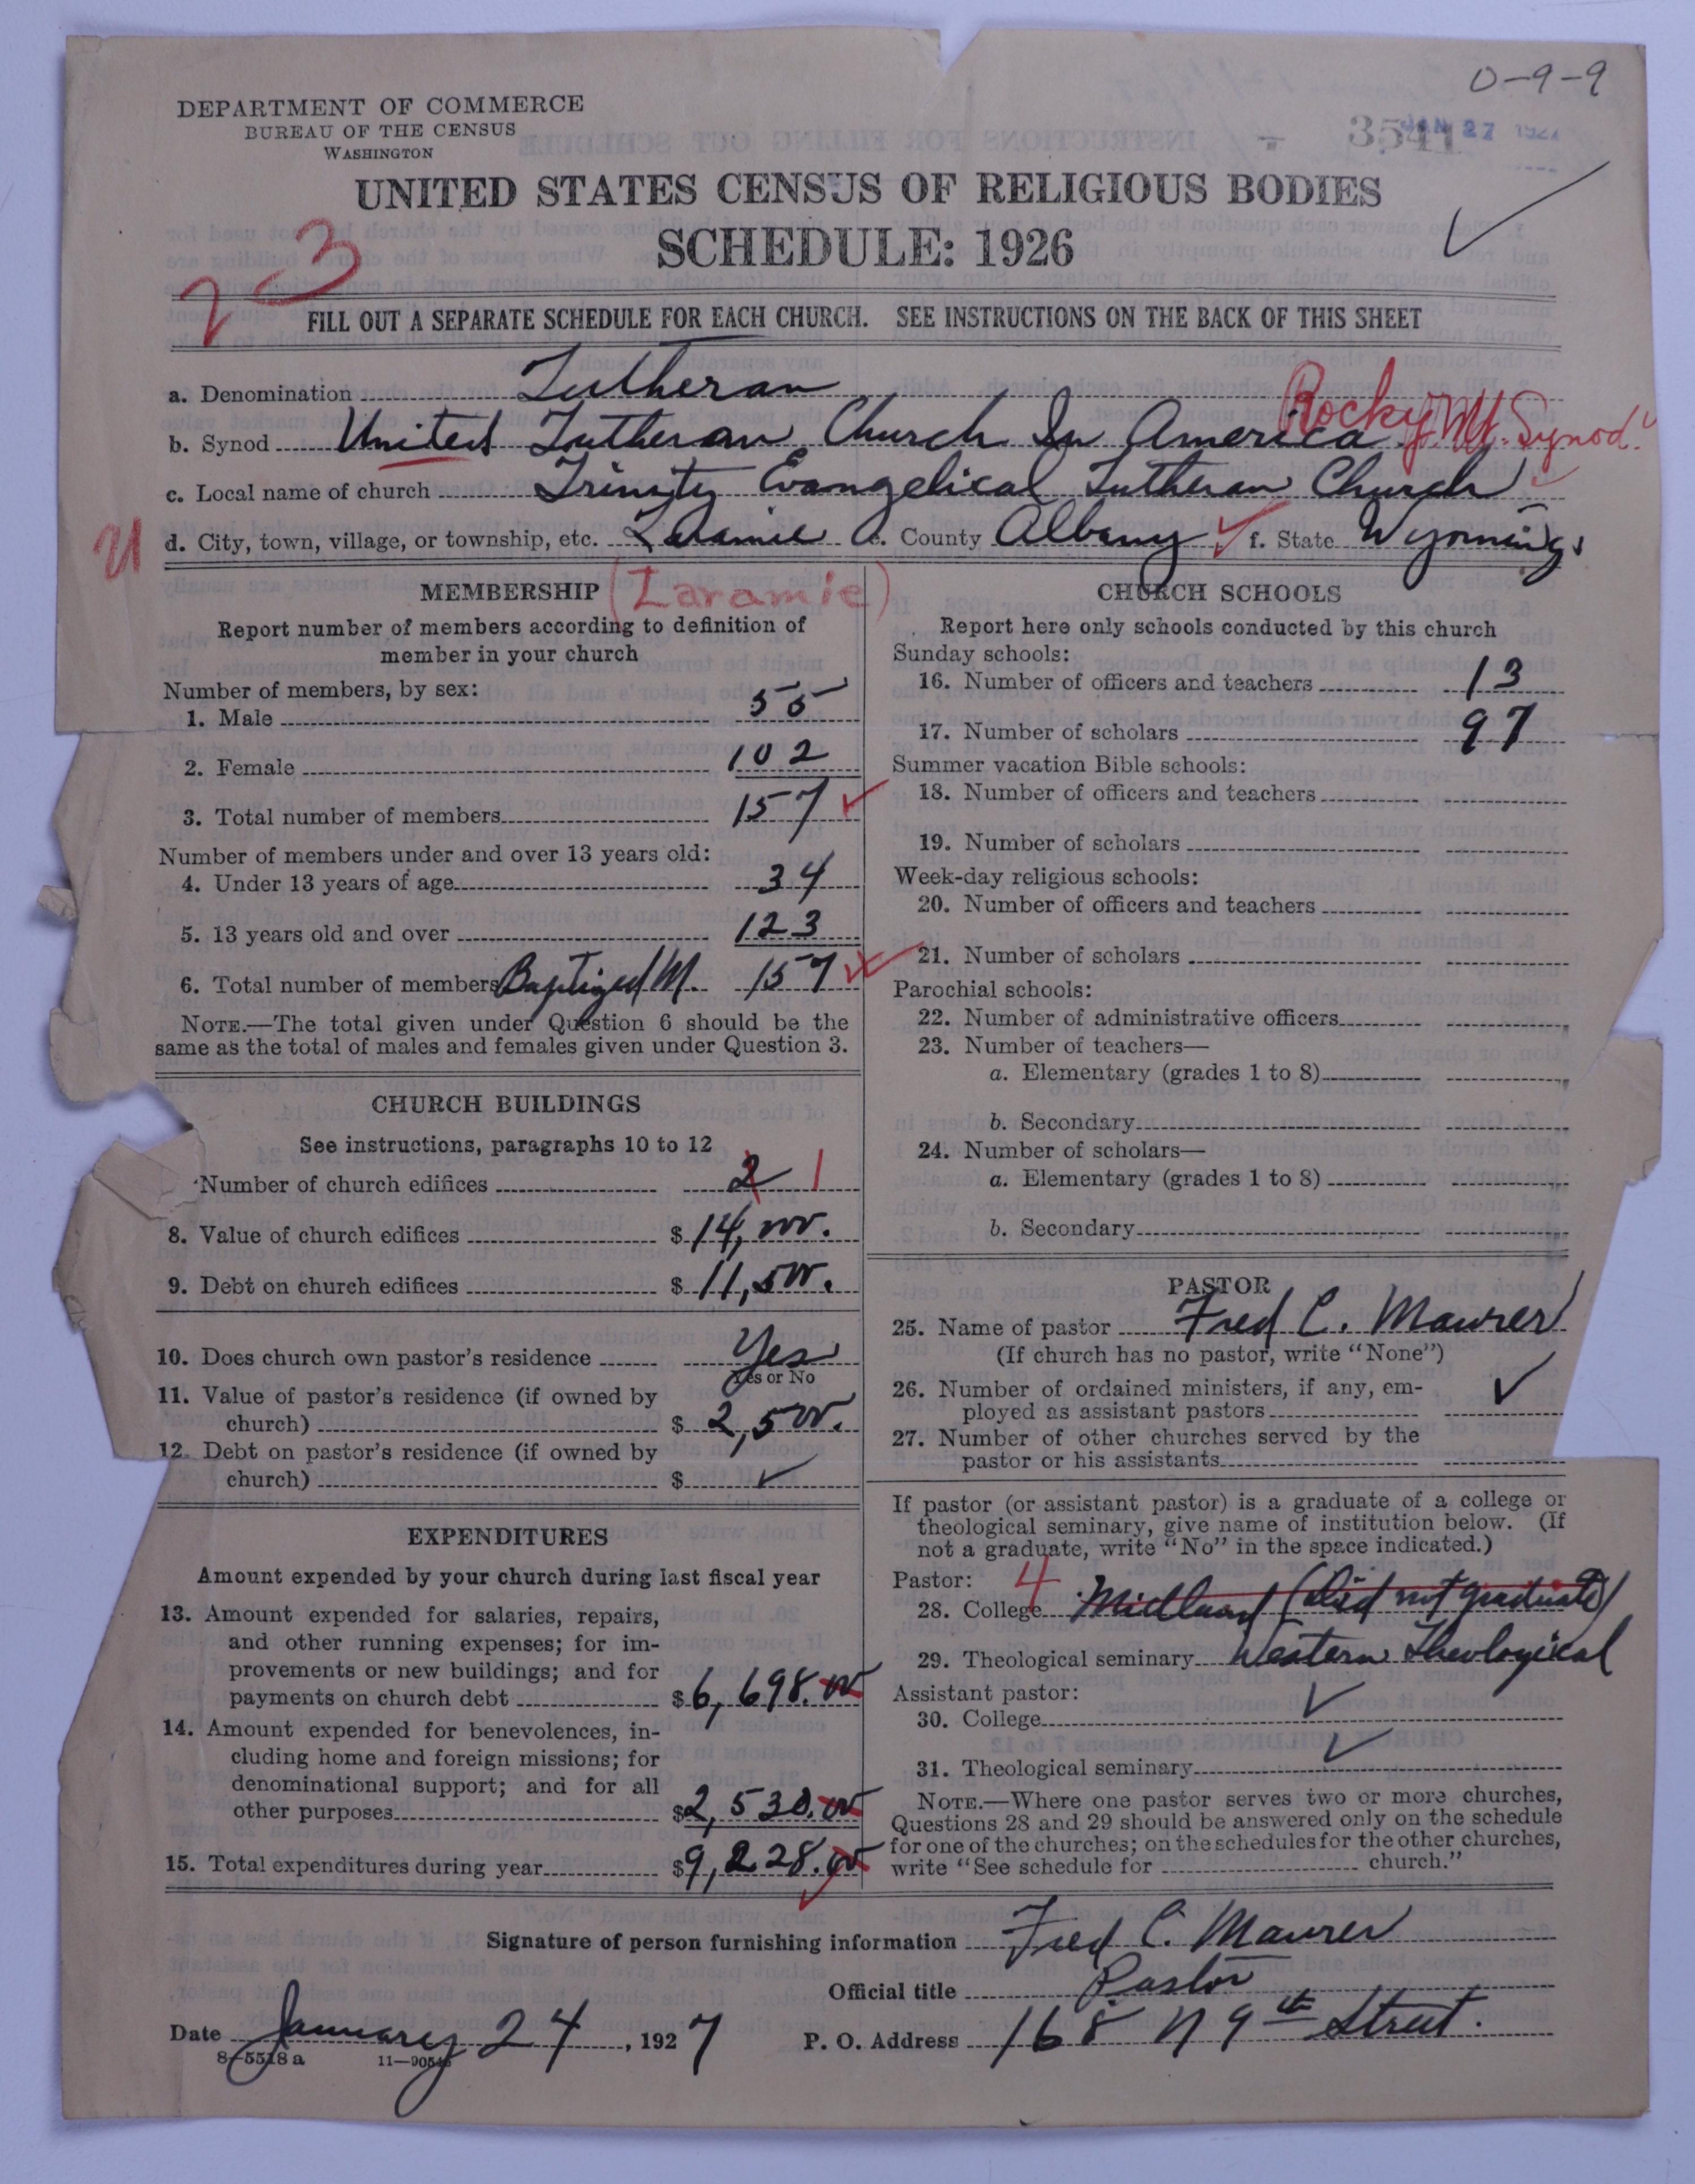 0-9-9
DEPARTMENT OF COMMERCE
BUREAU OF THE CENSUS
WASHINGTON
3541 JAN 27 1927
UNITED STATES CENSUS OF RELIGIOUS BODIES
SCHEDULE: 1926
23
FILL OUT A SEPARATE SCHEDULE FOR EACH CHURCH. SEE INSTRUCTIONS ON THE BACK OF THIS SHEET
a. Denomination Lutheran
b. Synod United Lutheran Church In America Rocky Mt. Synod.
c. Local name of church Trinity Evangelical Lutheran Church
d. City, town, village, or township, etc. Laramie e. County Albany f. State Wyoming
MEMBERSHIP (Laramie)
Report number of members according to definition of
member in your church
Number of members, by sex:
1. Male 55
2. Female 102
3. Total number of members 157
Number of members under and over 13 years old:
4. Under 13 years of age 34
5. 13 years old and over 123
6. Total number of members Baptized M. 157
NOTE.—The total given under Question 6 should be the
same as the total of males and females given under Question 3.
CHURCH BUILDINGS
See instructions, paragraphs 10 to 12
Number of church edifices 2 1
8. Value of church edifices $ 14,000.
9. Debt on church edifices $ 11,500.
10. Does church own pastor's residence Yes
Yes or No
11. Value of pastor's residence (if owned by
church) $ 2,500.
12. Debt on pastor's residence (if owned by
church) $ ✓
EXPENDITURES
Amount expended by your church during last fiscal year
13. Amount expended for salaries, repairs,
and other running expenses; for im-
provements or new buildings; and for
payments on church debt $ 6,698.00
14. Amount expended for benevolences, in-
cluding home and foreign missions; for
denominational support; and for all
other purposes $ 2,530.00
15. Total expenditures during year $ 9,228.00
CHURCH SCHOOLS
Report here only schools conducted by this church
Sunday schools:
16. Number of officers and teachers 13
17. Number of scholars 97
Summer vacation Bible schools:
18. Number of officers and teachers
19. Number of scholars
Week-day religious schools:
20. Number of officers and teachers
21. Number of scholars
Parochial schools:
22. Number of administrative officers
23. Number of teachers—
a. Elementary (grades 1 to 8)
b. Secondary
24. Number of scholars—
a. Elementary (grades 1 to 8)
b. Secondary
PASTOR
25. Name of pastor Fred C. Maurer
(If church has no pastor, write "None")
26. Number of ordained ministers, if any, em-
ployed as assistant pastors ✓
27. Number of other churches served by the
pastor or his assistants
If pastor (or assistant pastor) is a graduate of a college or
theological seminary, give name of institution below. (If
not a graduate, write "No" in the space indicated.)
Pastor: 4
28. College Midland (did not graduate)
29. Theological seminary Western Theological
Assistant pastor:
30. College ✓
31. Theological seminary ✓
NOTE.—Where one pastor serves two or more churches,
Questions 28 and 29 should be answered only on the schedule
for one of the churches; on the schedules for the other churches,
write "See schedule for church."
Signature of person furnishing information Fred C. Maurer
Official title Pastor
Date January 24, 1927 P. O. Address 168 N 9th Street.
8-5518 a